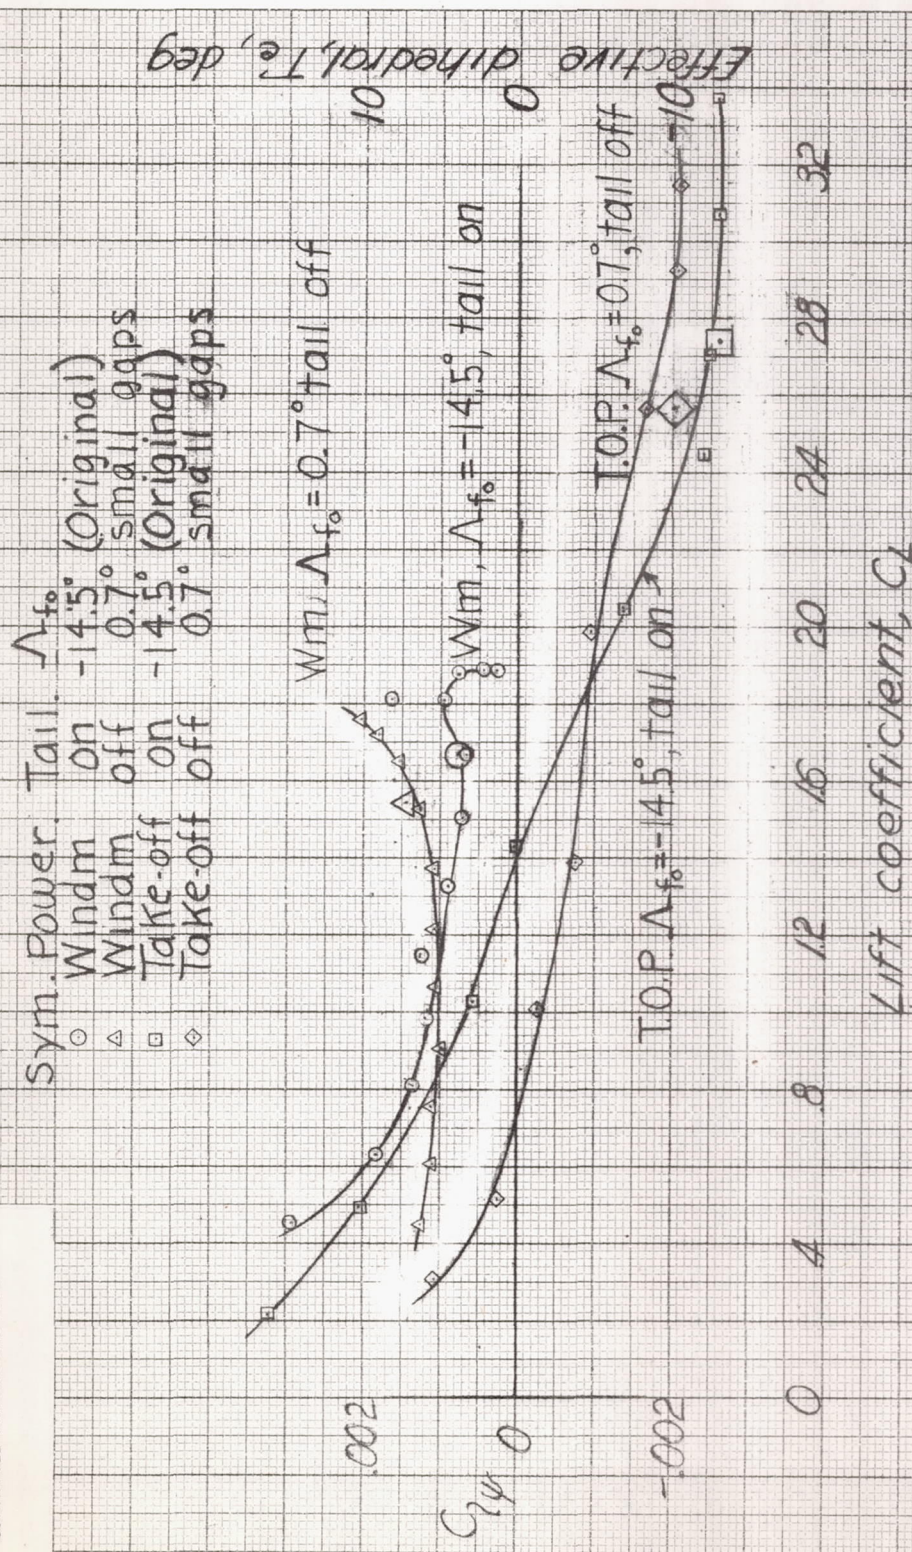 Sym. Power. Tail. Λf₀
○ Windm on -14.5° (Original)
△ Windm off 0.7° small gaps
□ Take-off on -14.5° (Original)
◇ Take-off off 0.7° small gaps
Wm. Λf₀=0.7° tail off
Wm, Λf₀=-14.5°, tail on
T.O.P. Λf₀=0.7°, tail off
T.O.P. Λf₀=-14.5°, tail on
.002
0
-.002
Clψ
10
0
-10
Effective dihedral, Γe, deg
0 .4 .8 1.2 1.6 20 24 28 32
Lift coefficient, CL